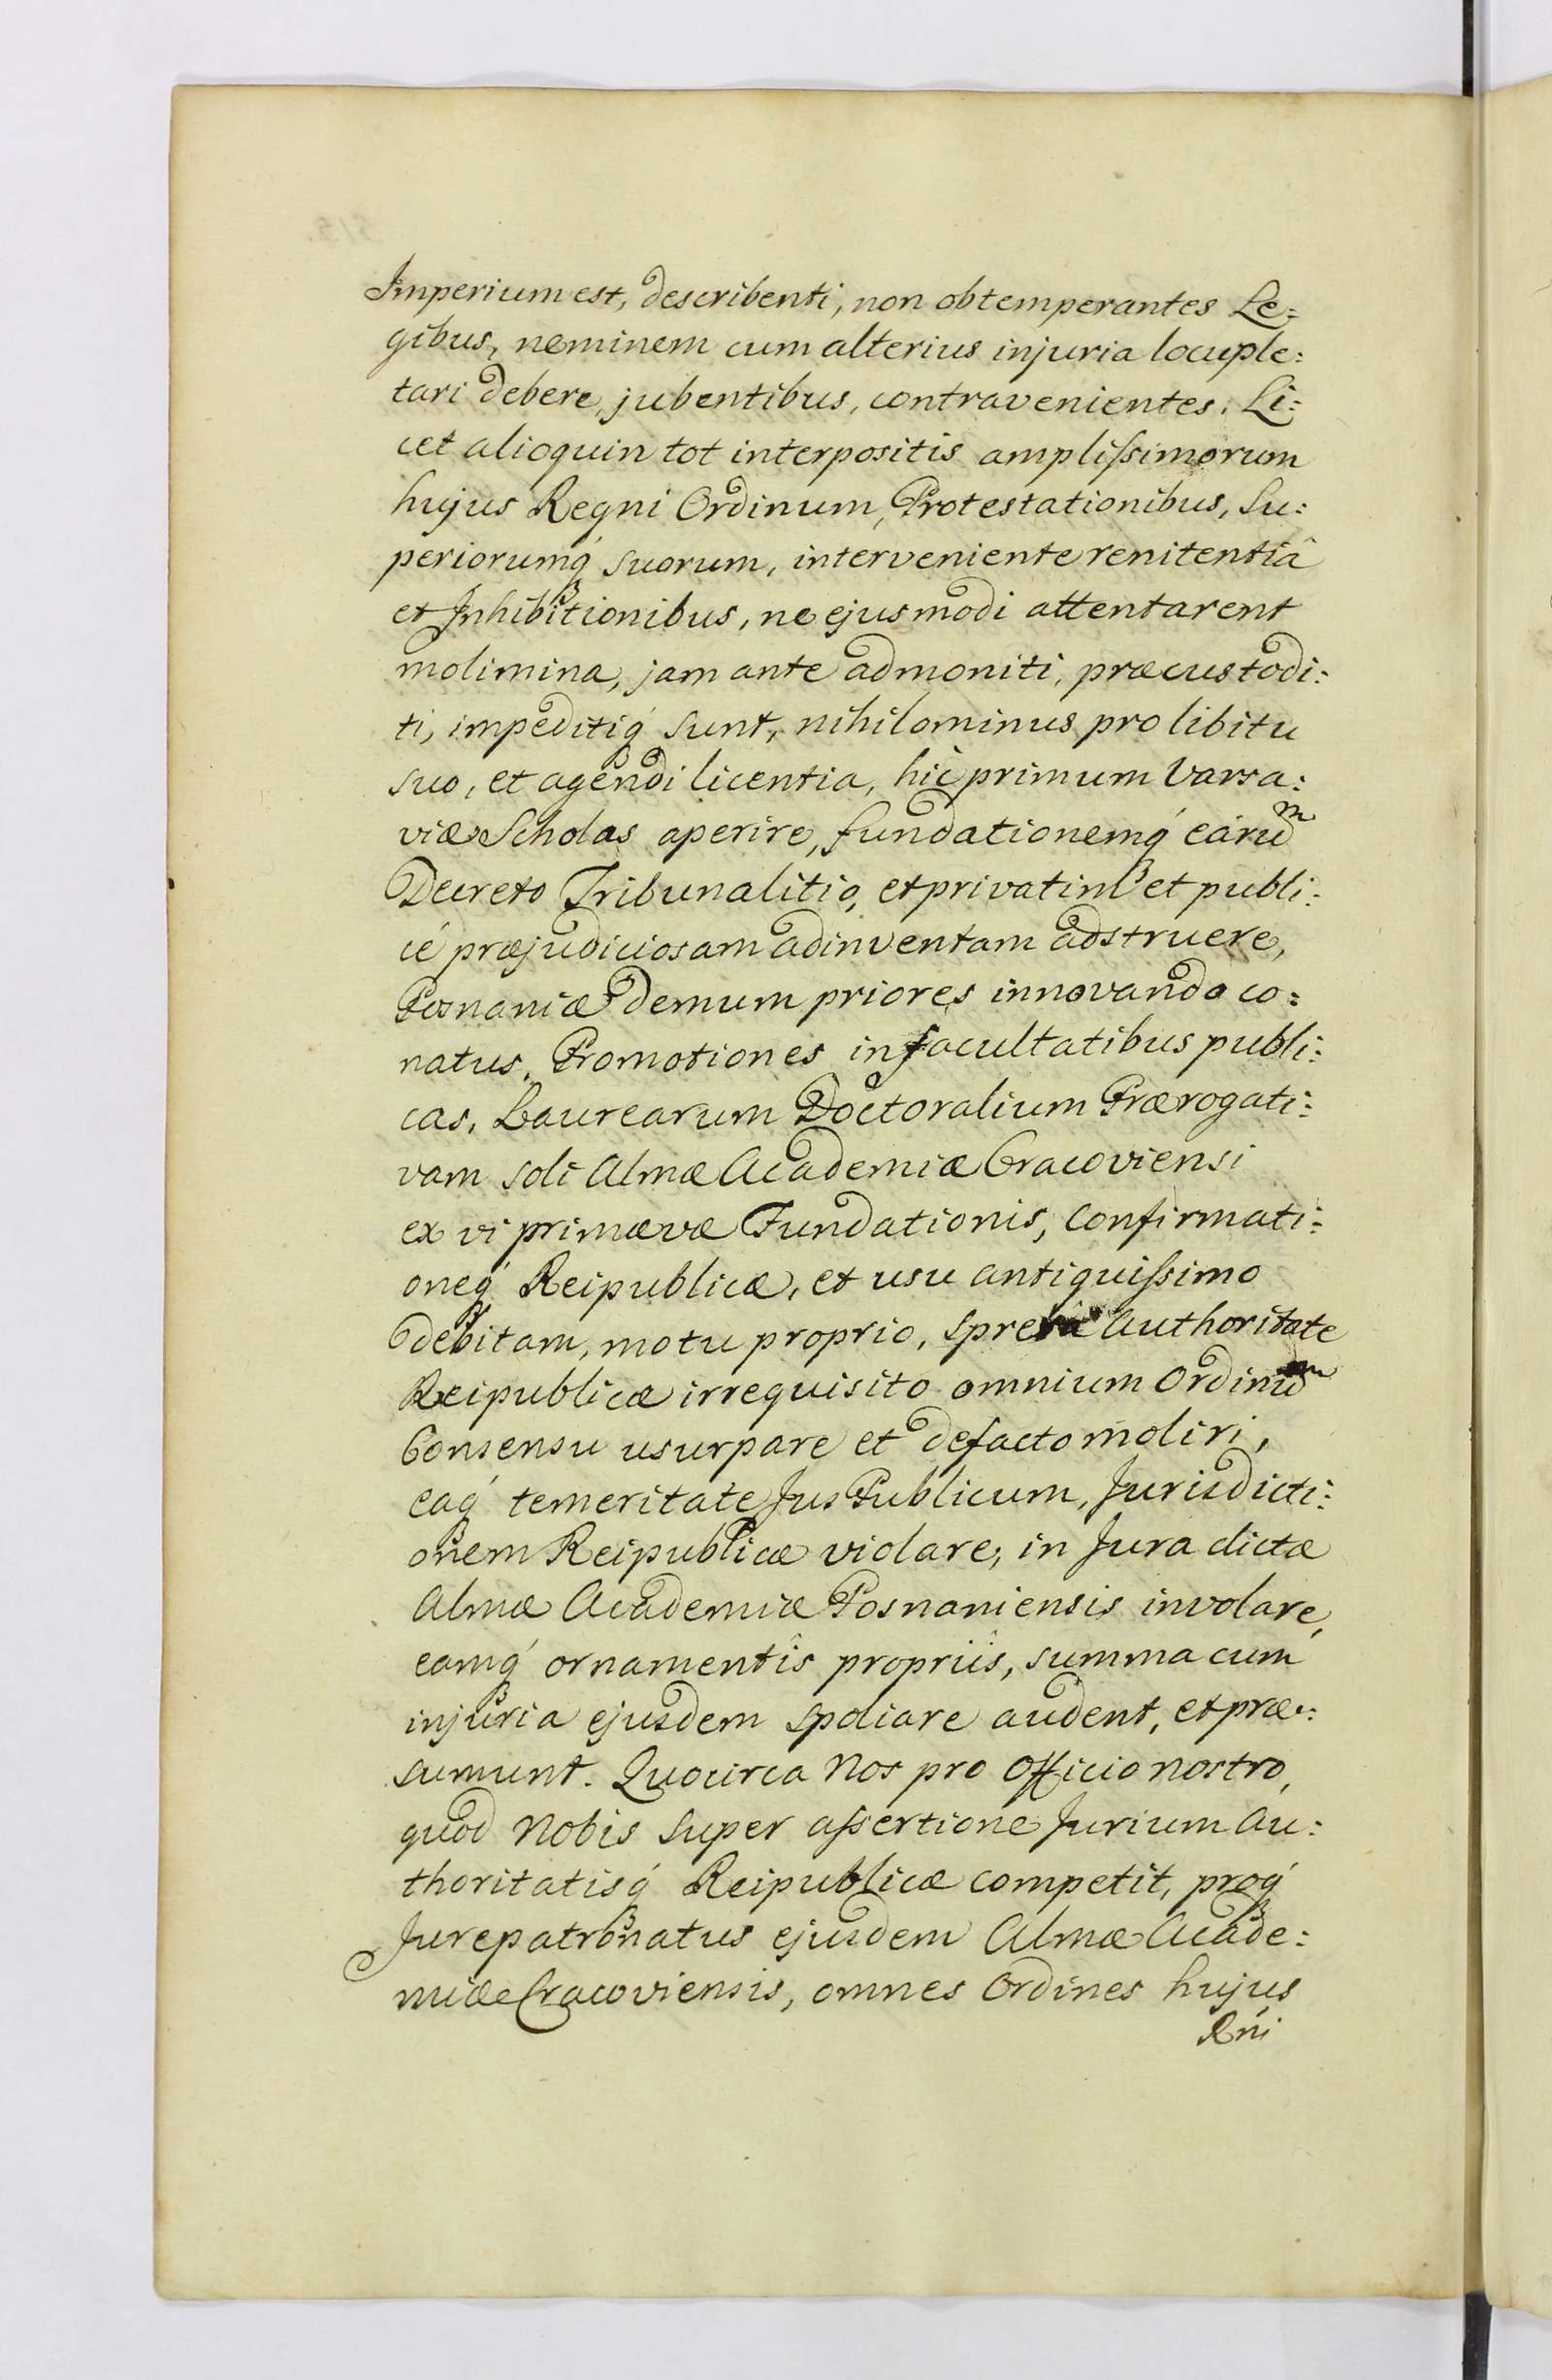 Imperium est, describenti, non obtemperantes Le=
gibus, neminem cum alterius injuria locuple:
tari debere, jubentibus, contravenientes. Li:
cet alioquin tot interpositis amplißimorum
hujus Regni Ordinum, Protestationibus, Su:
periorumq́ suorum, interveniente renitentiâ
et Inhibitionibus, ne ejusmodi attentarent
molimina, jam ante admoniti, præcustodi:
ti, impeditiq́ sunt, nihilominus pro libitu
suo, et agendi licentia, hic primum Varsa:
viæ Scholas aperire, fundationemq́ earum
Decreto Tribunalitio, et privatim et publi:
cé præjudiciosam adinventam adstruere,
Posnaniæ demum priores innovando co:
natus, Promotiones in facultatibus publi:
cas, Laurearum Doctoralium Prærogati:
vam soli Almæ Academiæ Cracoviensi
ex vi primævæ Fundationis, Confirmati:
oneq́ Reipublicæ, et usu antiquißimo
debitam, motu proprio, spretâ Authoritate
Reipublicæ irrequisito omnium Ordinum
Consensu usurpare et de facto moliri,
eaq́ temeritate Jus Publicum, Jurisdicti:
onem Reipublicæ violare, in Jura dictæ
Almæ Academiæ Posnaniensis involare,
eamq́ ornamentis propriis, summa cum
injuria ejusdem spoliare audent, et præ:
sumunt. Quocirca Nos pro Officio nostro,
quod Nobis super aßertione Jurium Au:
thoritatisq́ Reipublicæ competit, proq́
Jurepatronatus ejusdem Almæ Acade:
miæ Cracoviensis, omnes Ordines hujus
Rni